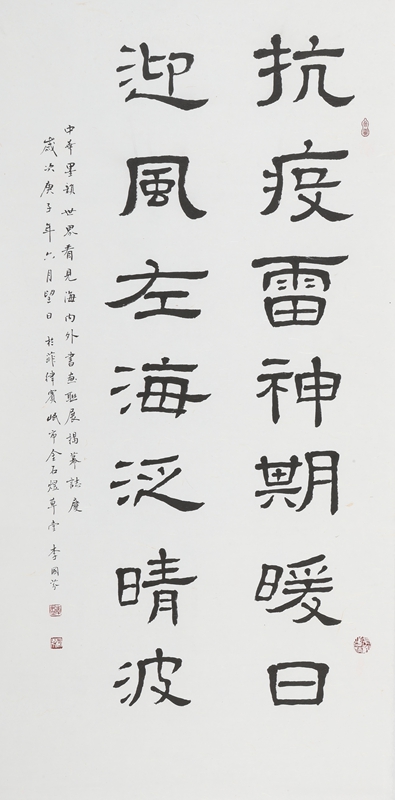 抗疫雷神期暖日
迎風左海泛晴波
中華墨韻世界看見海內外書畫聯展揭幕誌慶
歲次庚子年六月望日於菲律賓岷市金石草堂李國